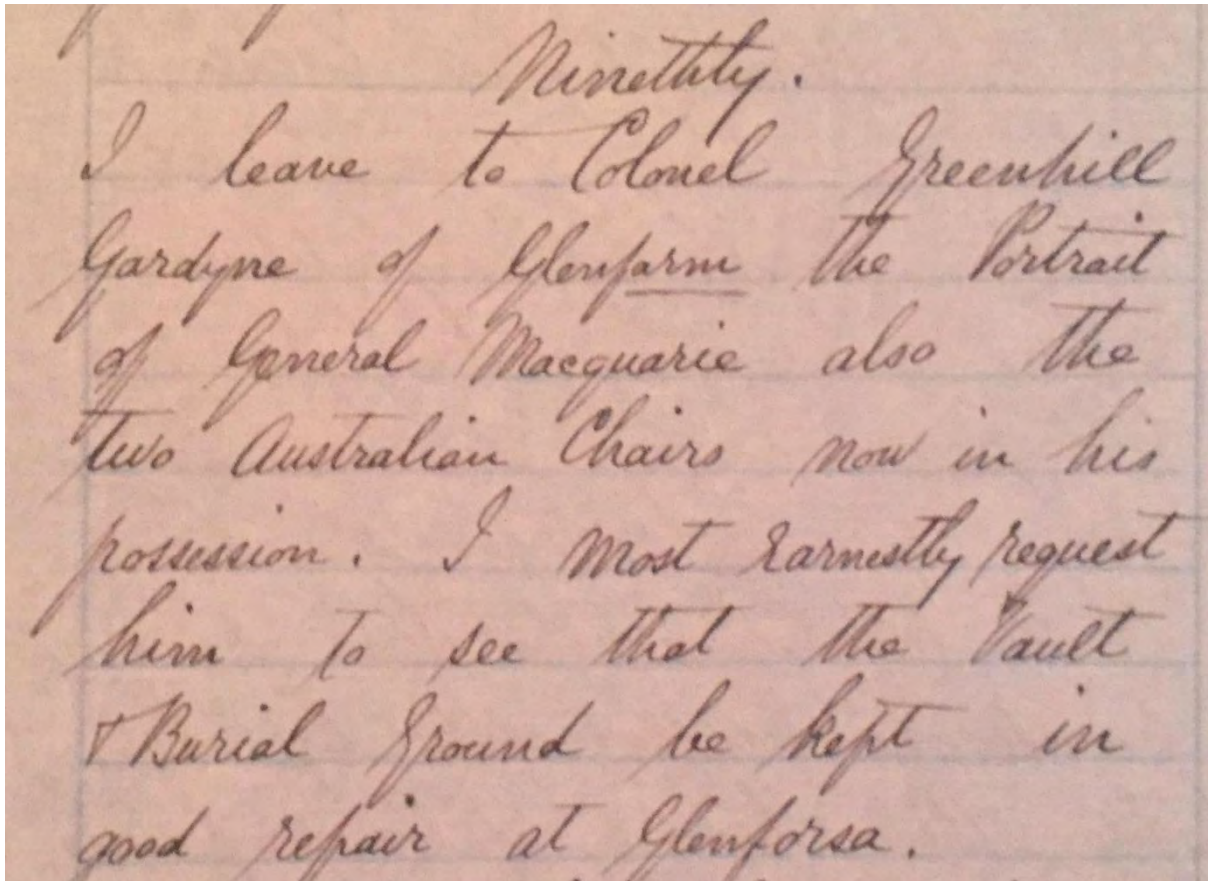 Ninethly.
I leave to Colonel Greenhill
Gardyne of Glenfarm the Portrait
of General Macquarie also the
two Australian Chairs now in his
possession. I most Earnestly request
him to see that the Vault
& Burial Ground be kept in
good repair at Glenforsa.